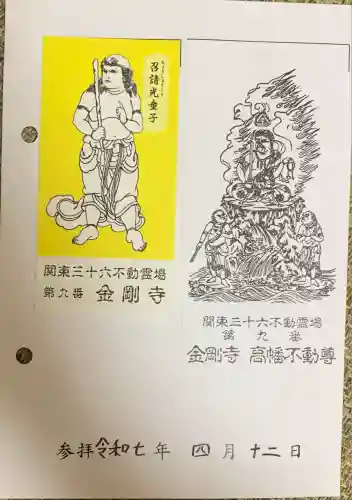 召請光童子
関東三十六不動霊場
第九番 金剛寺
関東三十六不動霊場
第九番
金剛寺 高幡不動尊
参拝令和七年 四月十二日